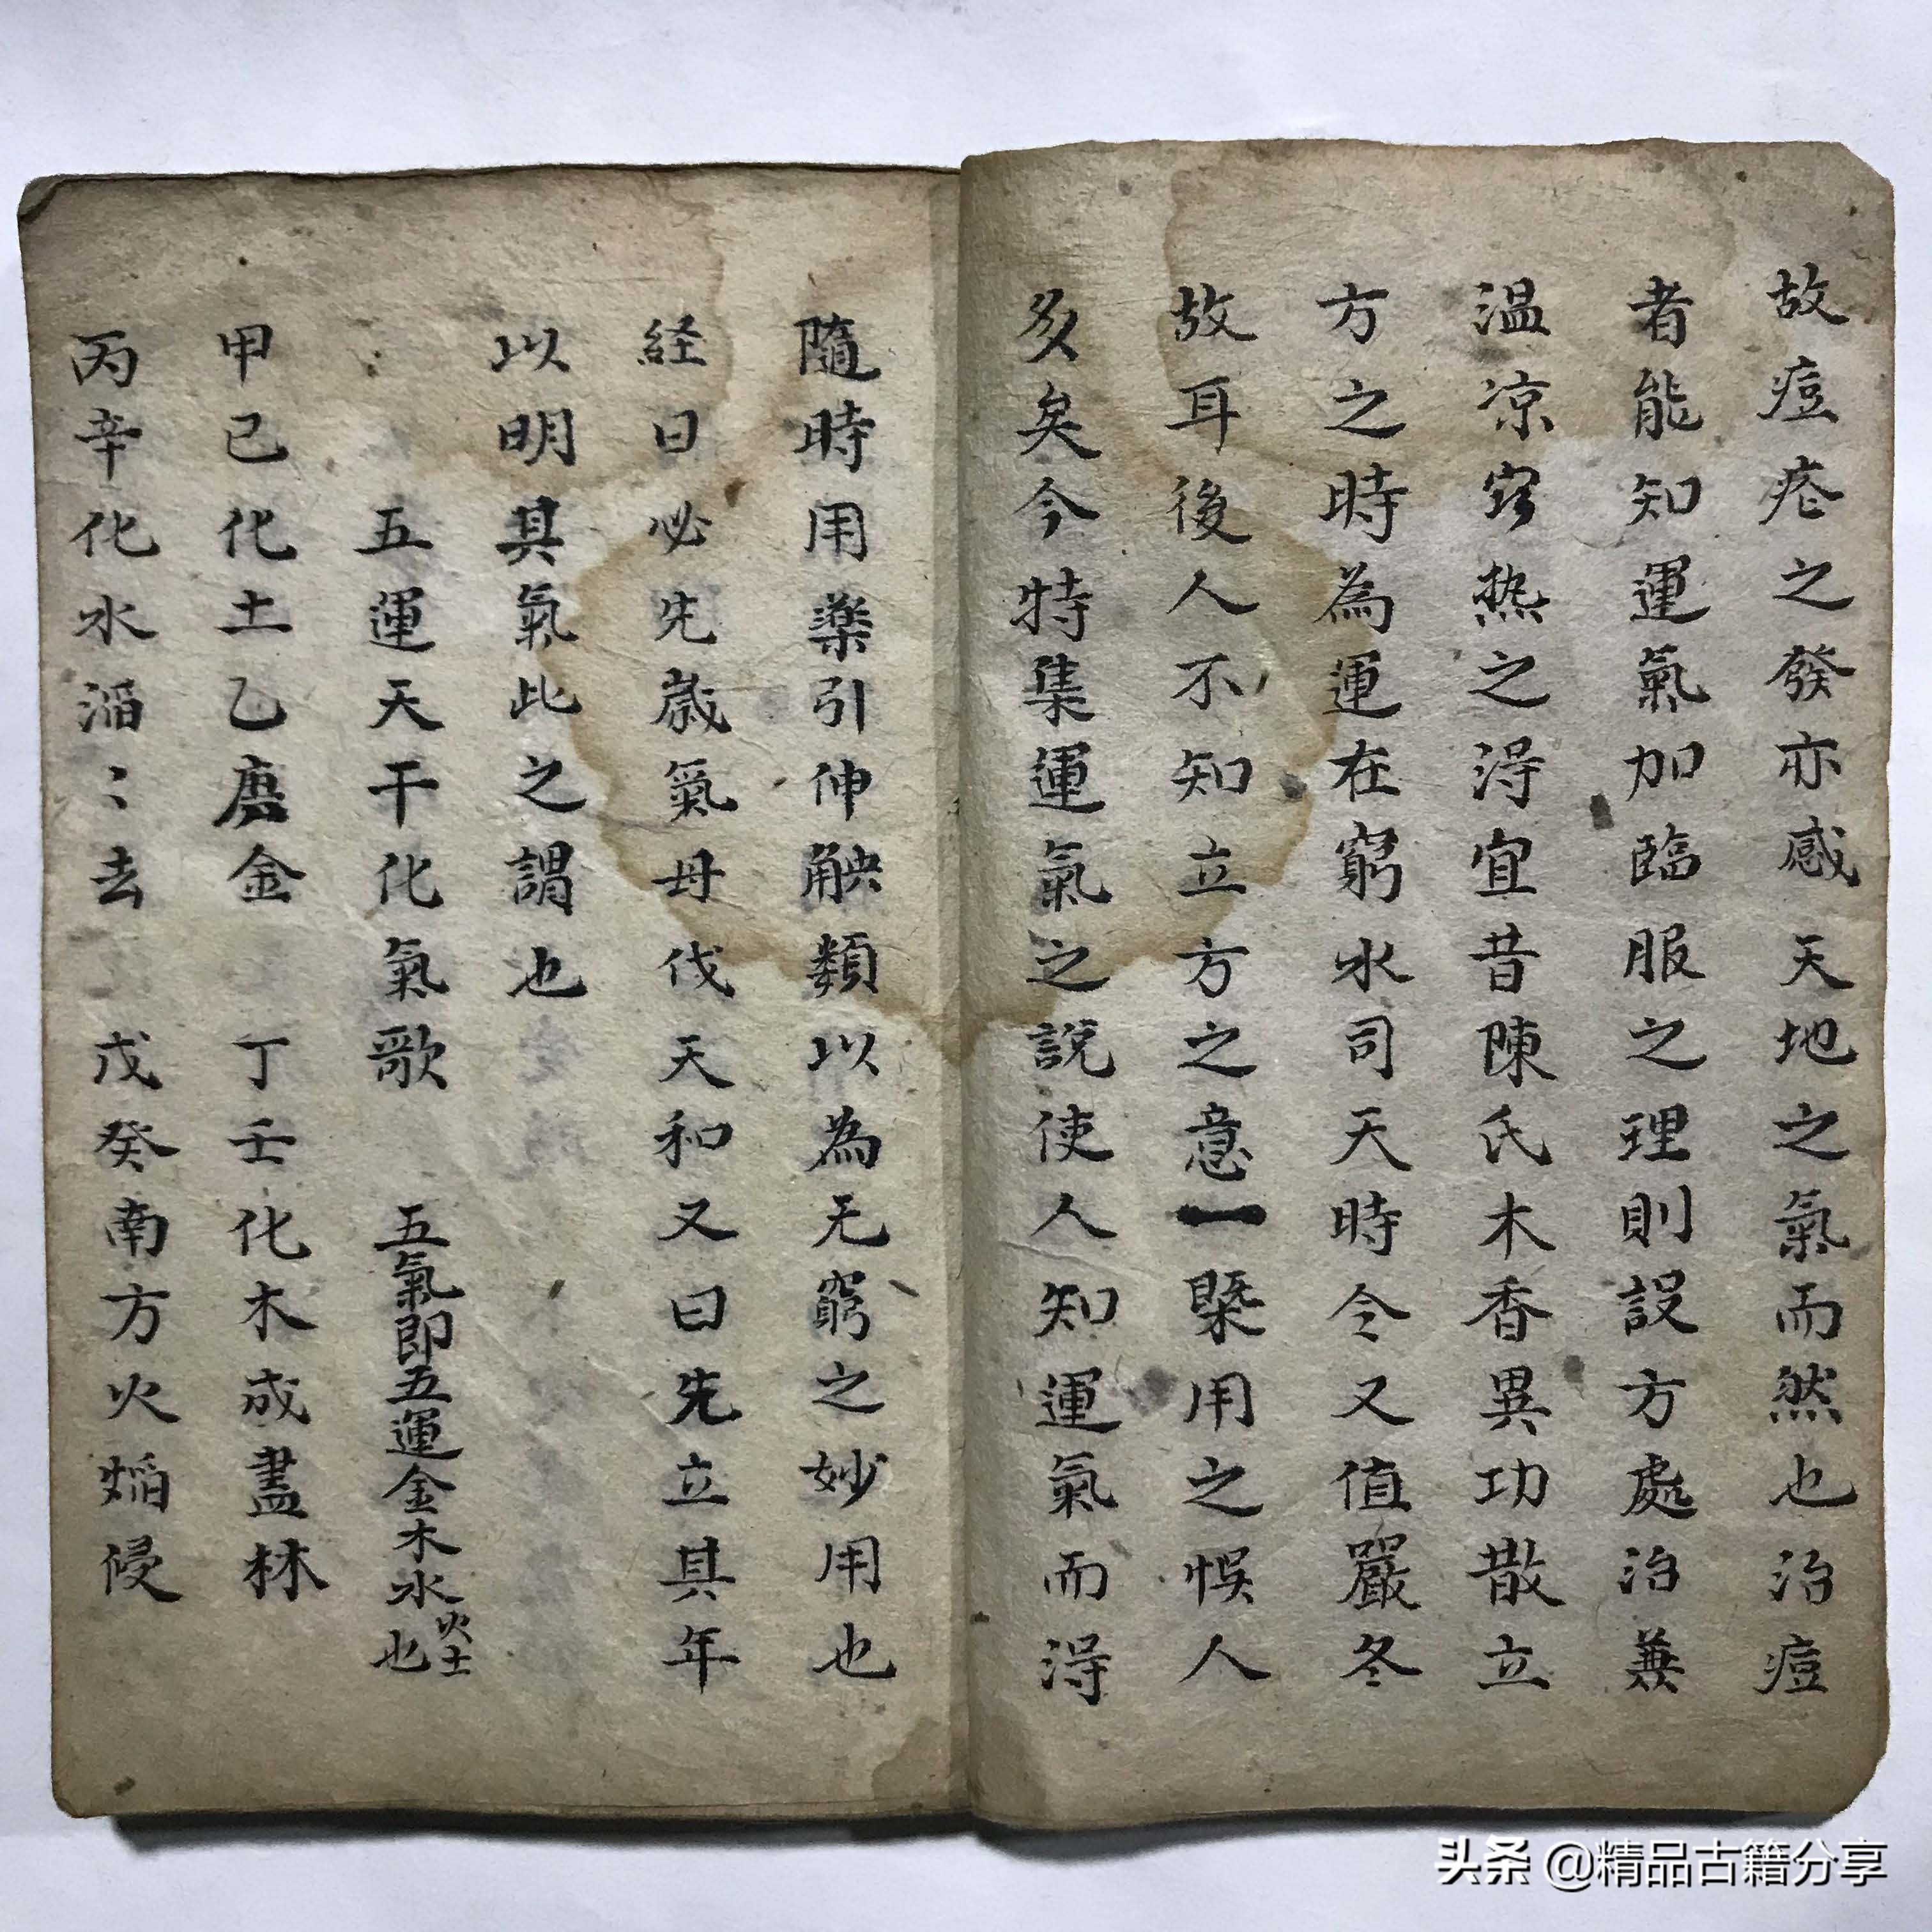 故痘疹之發亦感天地之氣而然也治痘
者能知運氣加臨服之理則設方處治兼
温凉寒热之得宜昔陳氏木香異功散立
方之時為運在窮水司天時令又值嚴冬
故耳後人不知立方之意一槩用之悞人
多矣今特集運氣之說使人知運氣而得
隨時用藥引伸觕類以為无窮之妙用也
経曰必先歲氣毋伐天和又曰先立其年
以明其氣此之謂也
五運天干化氣歌 五氣即五運金木水火土也
甲己化土乙庚金 丁壬化木成盡林
丙辛化水滔〻去 戊癸南方火焰侵
头条 @精品古籍分享